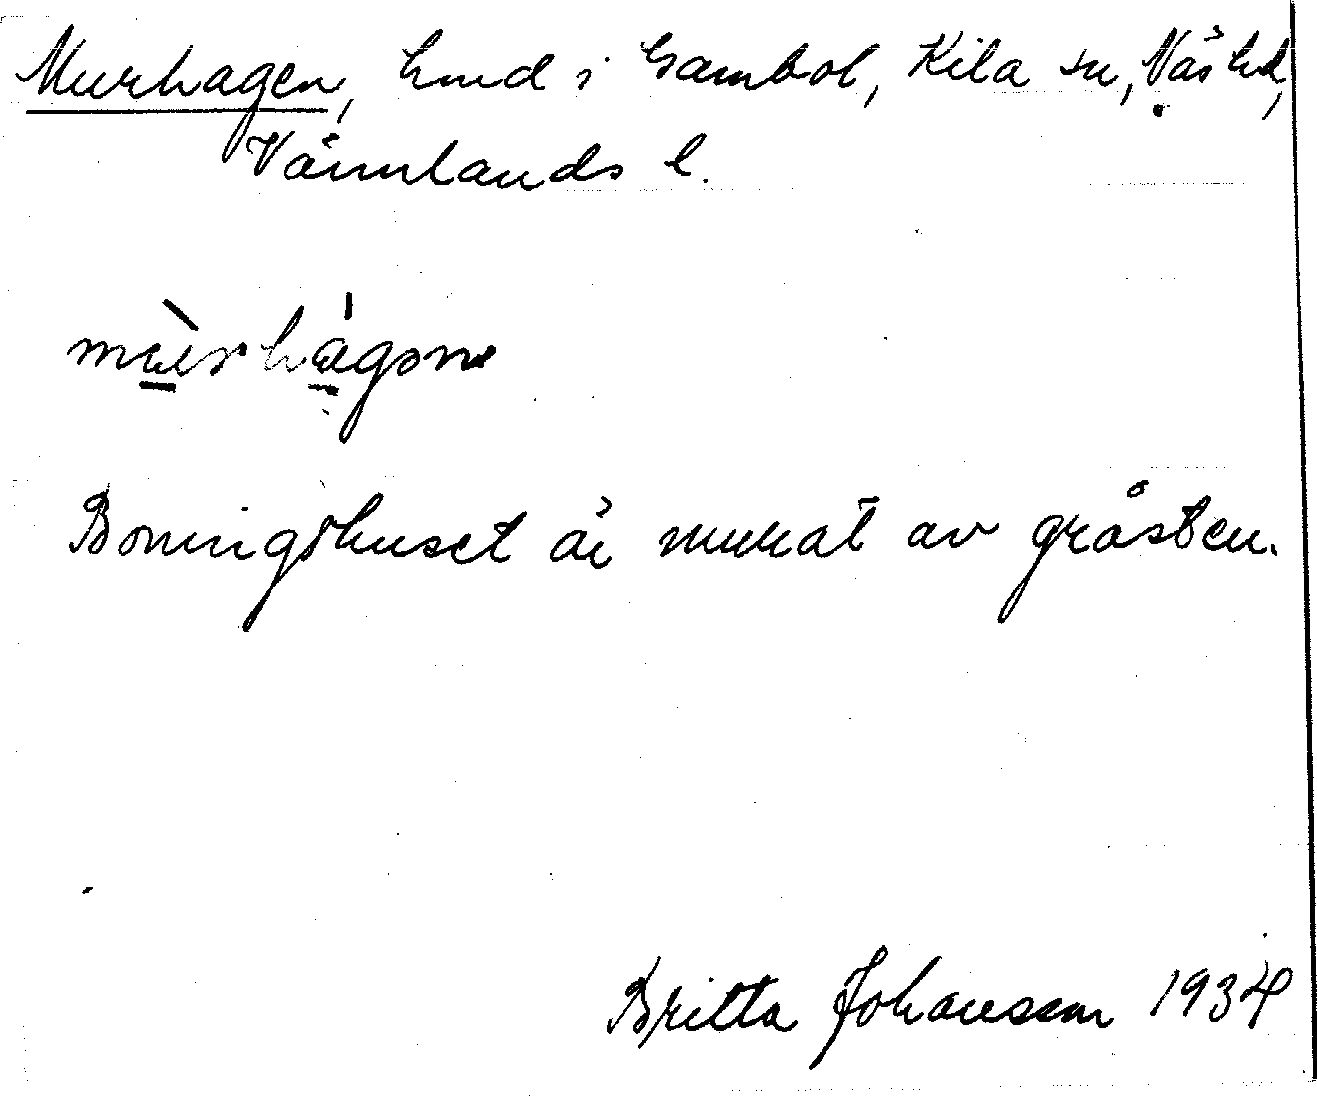 Murhagen, hmd i Gambol, Kila sn, Näs hd,
Värmlands l.
Boningshuset är murat av gråsten.
Britta Johansson 1934